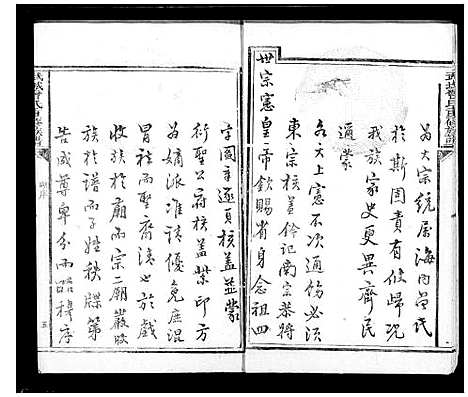 為大宗統屬海內曾氏
於斯固責有攸歸況
我族家史更異齊民
適蒙
各大上憲不次通飭必須
東宗核蓋鈐記南宗恭將
世宗憲皇帝欽賜省身念祖四
字圖章逐頁核蓋並蒙
衍聖公府核蓋紫印方
為嫡派准該優免庶混
冒祛而聖裔清也於戲
收族於廟而宗二廟嚴昳
族於譜而子姓秩牒第
告成尊卑分而昭穆序
五